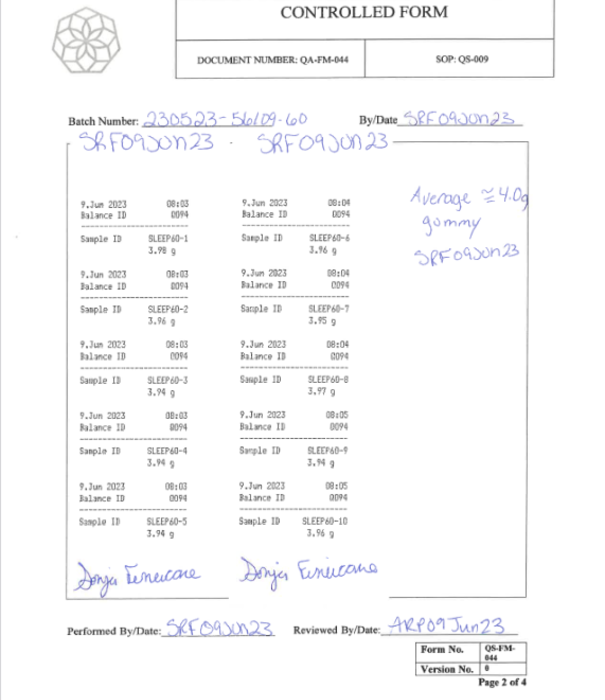 CONTROLLED FORM
DOCUMENT NUMBER: QA-FM-044 SOP: QS-009
Batch Number: 230523-56109-60 By/Date SRF09Jun23
SRF09Jun23 . SRF09Jun23
Average ≅ 4.0g
gummy
SRF09Jun23
9.Jun 2023 08:03
Balance ID 0094
Sample ID SLEEP60-1
3.98 g
9.Jun 2023 08:03
Balance ID 0094
Sample ID SLEEP60-2
3.96 g
9.Jun 2023 08:03
Balance ID 0094
Sample ID SLEEP60-3
3.94 g
9.Jun 2023 08:03
Balance ID 0094
Sample ID SLEEP60-4
3.94 g
9.Jun 2023 08:03
Balance ID 0094
Sample ID SLEEP60-5
3.94 g
9.Jun 2023 08:04
Balance ID 0094
Sample ID SLEEP60-6
3.96 g
9.Jun 2023 08:04
Balance ID 0094
Sample ID SLEEP60-7
3.95 g
9.Jun 2023 08:04
Balance ID 0094
Sample ID SLEEP60-8
3.97 g
9.Jun 2023 08:05
Balance ID 0094
Sample ID SLEEP60-9
3.94 g
9.Jun 2023 08:05
Balance ID 0094
Sample ID SLEEP60-10
3.96 g
Performed By/Date: SRF09Jun23 Reviewed By/Date: ARP09Jun23
Form No. QS-FM-
044
Version No. 0
Page 2 of 4